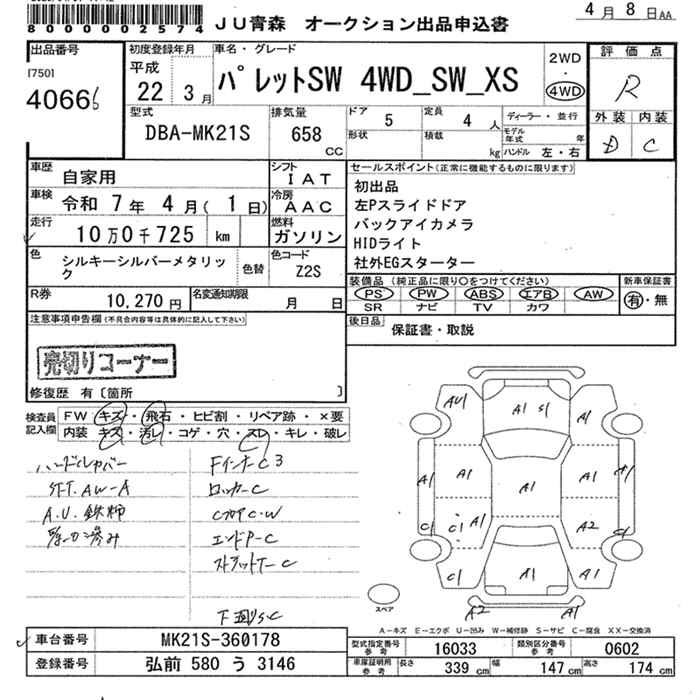 4月8日AA
80000002574
JU青森 オークション出品申込書
出品番号
17501
40666
初度登録年月
平成
22年3月
車名・グレード
パレットSW 4WD_SW_XS
2WD
・
4WD
評価点
R
外装 内装
D C
型式
DBA-MK21S
排気量
658
CC
ドア
5
定員
4人
形状
積載
kg
ディーラー・並行
モデル年式 年
ハンドル 左・右
車歴
自家用
シフト
IAT
車検
令和 7年 4月( 1日)
冷房
AAC
走行
10万0千725 km
燃料
ガソリン
色
シルキーシルバーメタリック
色替
色コード
Z2S
R券
10,270円
名変通知期限
月 日
セールスポイント(正常に機能するものに限ります)
初出品
左Pスライドドア
バックアイカメラ
HIDライト
社外EGスターター
装備品(純正品に限り○をつけてください)
PS PW ABS エアB AW
SR ナビ TV カワ
新車保証書
有・無
後日品
保証書・取説
注意事項申告欄(不具合内容等は具体的に記入して下さい)
売切りコーナー
修復歴 有〔箇所 〕
検査員記入欄
FW キズ・飛石・ヒビ割・リペア跡・×要
内装 キズ・汚レ・コゲ・穴・スレ・キレ・破レ
ハンドルカバー
Fインナーc3
SFT.AW-A
ロッカーC
A.U.鉄柿
エンドP-C
ストラットT-C
下回りSC
AU
A1
S1
A1
A1
A1
A1
A1
A1
C1
C1
A1
A2
C1
C1
A1
A1
A2
A1
スペア
A-キズ E-エクボ U-凹み W-補修跡 S-サビ C-腐食 XX-交換済
車台番号
MK21S-360178
登録番号
弘前 580 う 3146
型式指定番号
参考
16033
類別区分番号
参考
0602
車庫証明用
参考
長さ
339cm
幅
147cm
高さ
174cm